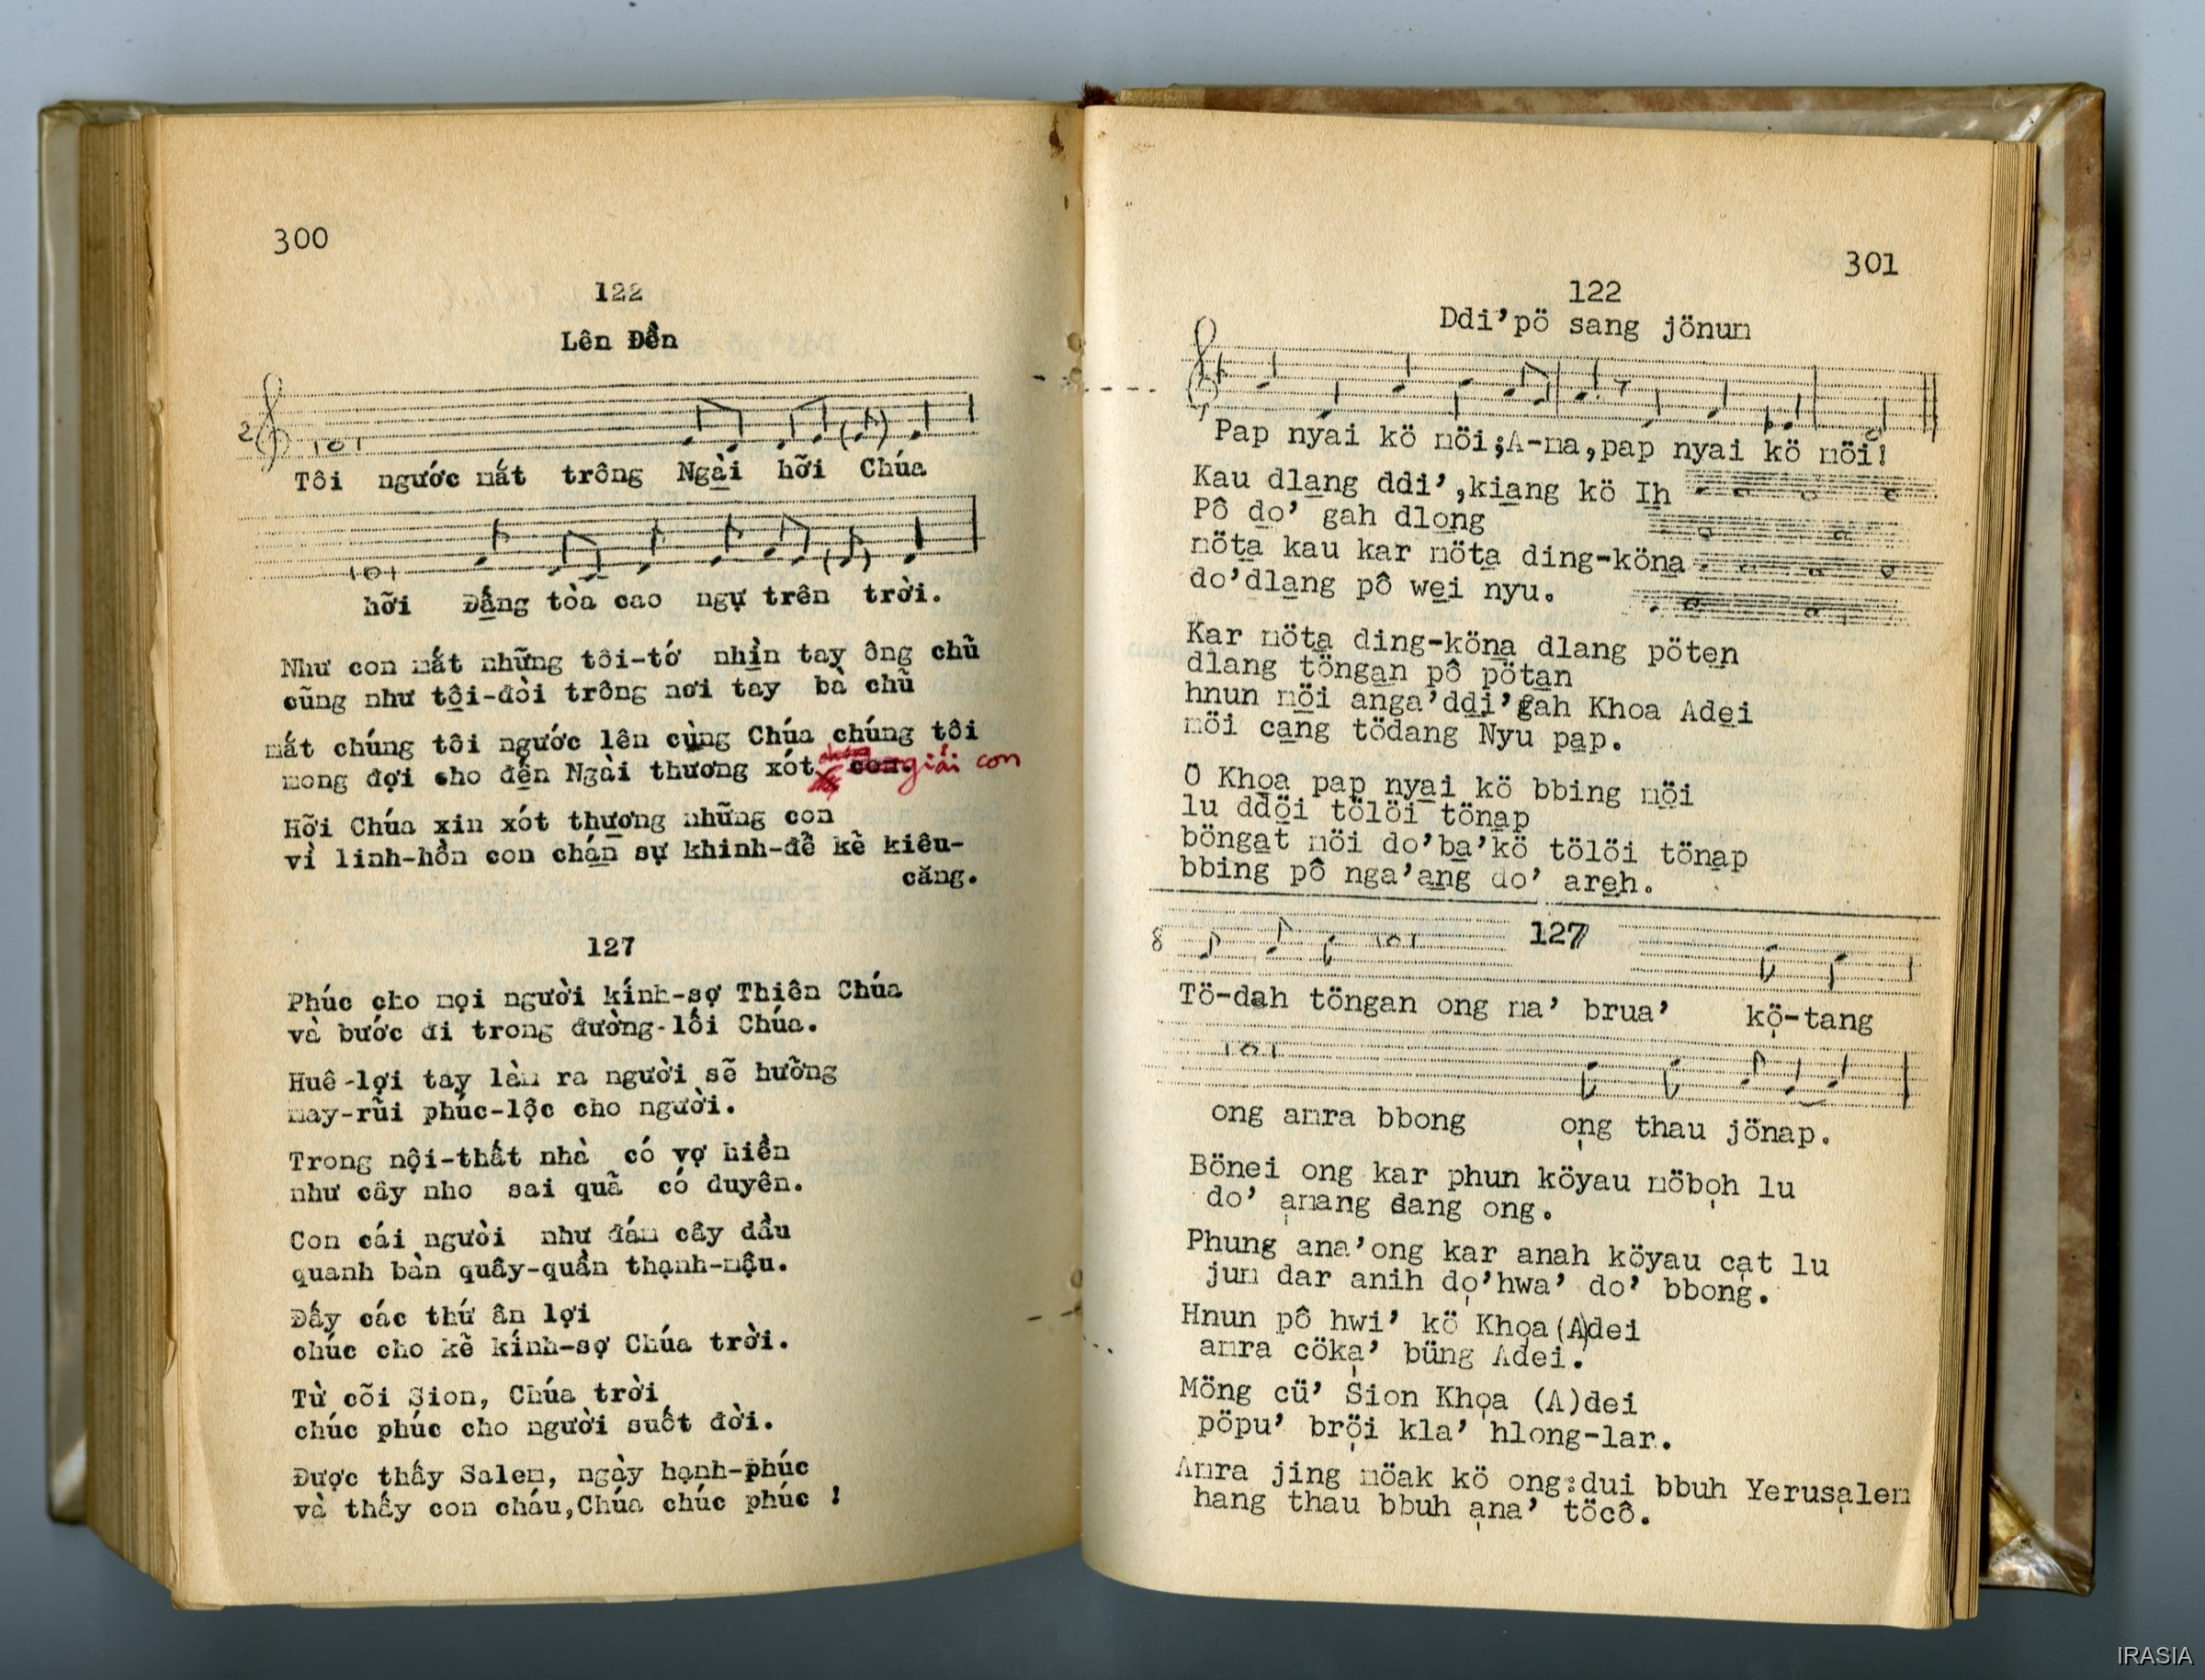 300
122
Lên Đền
2
Tôi ngước mắt trông Ngài hỡi Chúa
hỡi Đấng tòa cao ngự trên trời.
Như con mắt những tôi-tớ nhìn tay ông chủ
cũng như tôi-đòi trông nơi tay bà chủ
mắt chúng tôi ngước lên cùng Chúa chúng tôi
mong đợi cho đến Ngài thương xót con. giái con
Hỡi Chúa xin xót thương những con
vì linh-hồn con chán sự khinh-để kẻ kiêu-
căng.
127
Phúc cho mọi người kính-sợ Thiên Chúa
và bước đi trong đường-lối Chúa.
Huê-lợi tay làm ra người sẽ hưởng
may-rủi phúc-lộc cho người.
Trong nội-thất nhà có vợ hiền
như cây nho sai quả có duyên.
Con cái người như đám cây dầu
quanh bàn quây-quần thạnh-mậu.
Đấy các thứ ân lợi
chúc cho kẻ kính-sợ Chúa trời.
Từ cõi Sion, Chúa trời
chúc phúc cho người suốt đời.
Được thấy Salem, ngày hạnh-phúc
và thấy con cháu,Chúa chúc phúc !
301
122
Ddi’pö sang jönum
7
Pap nyai kö möi;A-ma,pap nyai kö möi!
Kau dlang ddi’,kiang kö Ih
Pô do’ gah dlong
möta kau kar möta ding-köna
do’dlang pô wei nyu.
Kar möta ding-köna dlang pöten
dlang töngan pô pötan
hnun möi anga’ddi’gah Khoa Adei
möi cang tödang Nyu pap.
O Khoa pap nyai kö bbing möi
lu ddöi tölöi tönap
böngat möi do’ba’kö tölöi tönap
bbing pô nga’ang do’ areh.
8
127
Tö-dah töngan ong ma’ brua’ kö-tang
ong amra bbong ong thau jönap.
Bönei ong kar phun köyau möboh lu
do’ amang sang ong.
Phung ana’ong kar anah köyau cat lu
jum dar anih do’hwa’ do’ bbong.
Hnun pô hwi’ kö Khoa(A)dei
amra cöka’ büng Adei.
Möng cü’ Sion Khoa (A)dei
pöpu’ bröi kla’ hlong-lar.
Amra jing möak kö ong:dui bbuh Yerusalem
hang thau bbuh ana’ töcô.
IRASIA